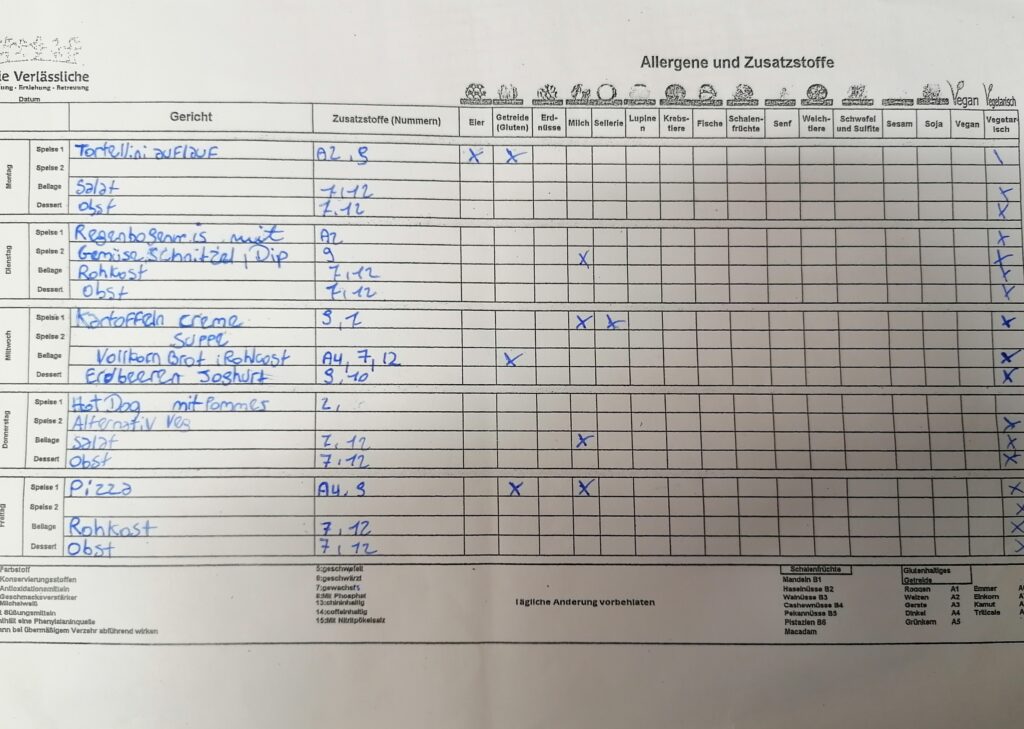 ie Verlässliche
ung - Erziehung - Betreuung
Datum
Allergene und Zusatzstoffe
Vegan Vegetarisch
Gericht Zusatzstoffe (Nummern) Eier Getreide (Gluten) Erd-nüsse Milch Sellerie Lupine n Krebs-tiere Fische Schalen-früchte Senf Weich-tiere Schwefel und Sulfite Sesam Soja Vegan Vegetar-isch
Montag
Speise 1 Tortellini auflauf A2, 9 X X \
Speise 2
Beilage Salat 7,12 X
Dessert Obst 7,12 X
Dienstag
Speise 1 Regenbogenreis mit A2 X
Speise 2 Gemüse Schnitzel, Dip 9 X X
Beilage Rohkost 7,12 X
Dessert Obst 7,12 X
Mittwoch
Speise 1 Kartoffeln creme 9,1 X X X
Speise 2 Suppe
Beilage Vollkorn Brot, Rohkost A4, 7, 12 X X
Dessert Erdbeeren Joghurt 9,10 X
Donnerstag
Speise 1 Hot Dog mit Pommes 2,
Speise 2 Alternativ Veg X
Beilage Salat 7,12 X X
Dessert Obst 7,12 X
Freitag
Speise 1 Pizza A4, 9 X X X
Speise 2 X
Beilage Rohkost 7,12 X
Dessert Obst 7,12 X
Farbstoff 5:geschwefelt Schalenfrüchte Glutenhaltiges
Konservierungsstoffen 6:geschwärzt Mandeln B1 Getreide
Antioxidationsmitteln 7:gewachst Haselnüsse B2 Roggen A1 Emmer
Geschmacksverstärker 8:Mit Phosphat Walnüsse B3 Weizen A2 Einkorn
Milcheiweiß 13:chininhaltig Tägliche Änderung vorbehlaten Cashewnüsse B4 Gerste A3 Kamut
t Süßungsmitteln 14:coffeinhaltig Pekannüsse B5 Dinkel A4 Triticale
nthält eine Phenylalaninquelle 15:Mit Nitritpökelsalz Pistazien B6 Grünkern A5
ann bei übermäßigem Verzehr abführend wirken Macadam